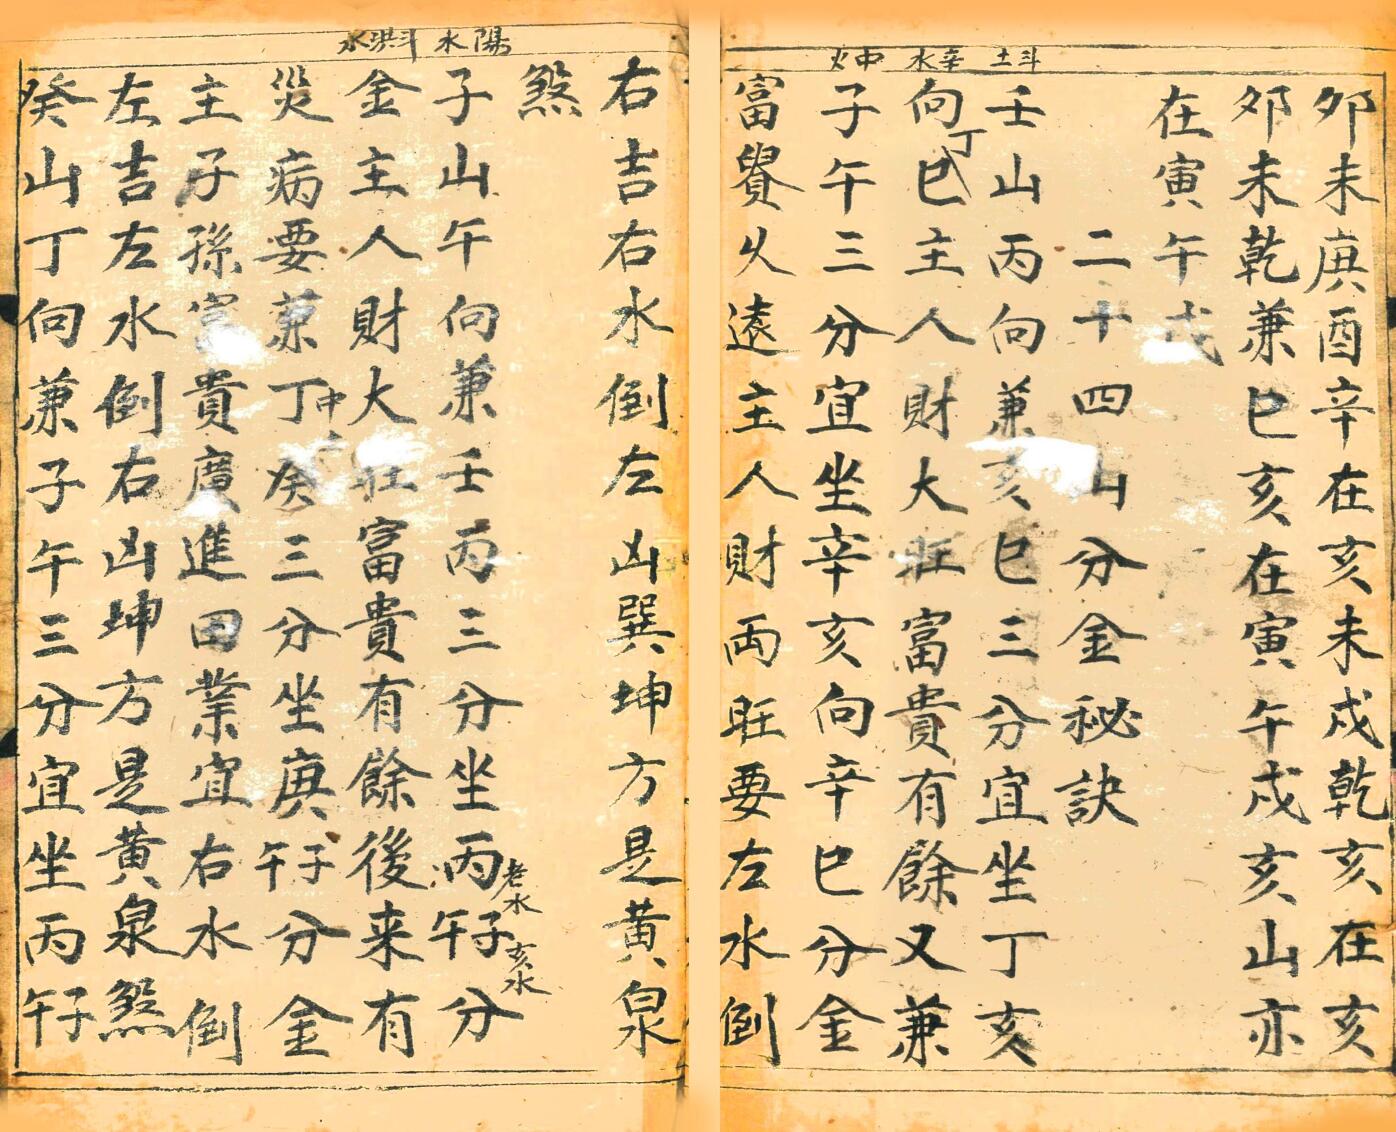 斗土 辛水 中火
卯未庚酉辛在亥未戍乾亥在亥
卯未乾兼巳亥在寅午戍亥山亦
在寅午戍
二十四山分金秘訣
壬山丙向兼亥巳三分宜坐丁亥
向丁巳主人財大旺富貴有餘又兼
子午三分宜坐辛亥向辛巳分金
富貴久遠主人財兩旺要左水倒
陽水 斗洪水
右吉右水倒左凶巽坤方是黄泉
煞
子山午向兼壬丙三分坐丙子午分
老水 亥水
金主人財大旺富貴有餘後来有
災病要兼丁癸三分坐庚子午分金
中
主子孫富貴廣進田業宜右水倒
左吉左水倒右凶坤方是黄泉煞
癸山丁向兼子午三分宜坐丙子午